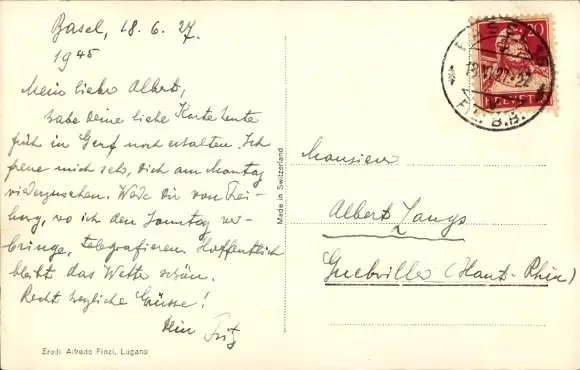 Basel, 18.6.27.
19⁴⁵
Mein lieber Albert,
habe Deine liebe Karte heute
früh in Genf noch erhalten. Ich
freue mich sehr, Dich am Montag
wiederzusehen. Werde Dir von Frei-
burg, wo ich den Sonntag ver-
bringe, telegrafieren. Hoffentlich
bleibt das Wetter schön.
Recht herzliche Grüsse!
Dein Fritz
Eredi Alfredo Finzi, Lugano
Made in Switzerland
20
HELVETIA
BASEL
18.VI.27.-22
Monsieur
Albert
Guebviller (Haut-Rhin)